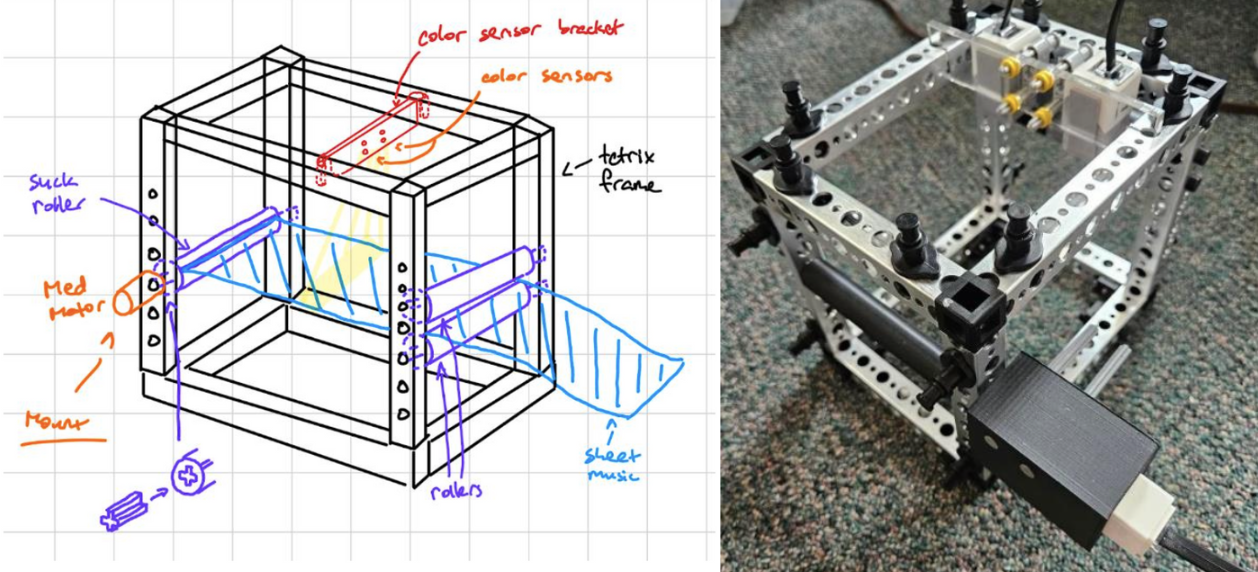 color sensor bracket
color sensors
tetrix
frame
suck
roller
Med
Motor
Mount
sheet
music
rollers